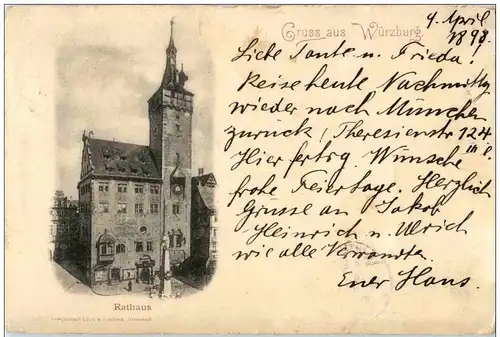 Gruss aus Würzburg.
9. April
1898.
Liebe Tante u. Frieda!
Reise heute Nachmittg
wieder nach München
zurück, Theresienstr 124
III l.
Hier fertig. Wünsche
frohe Feiertage. Herzlich
Grüsse an Jakob
Heinrich u. Ulrich
wie alle Verwandten.
Euer Hans.
Rathaus